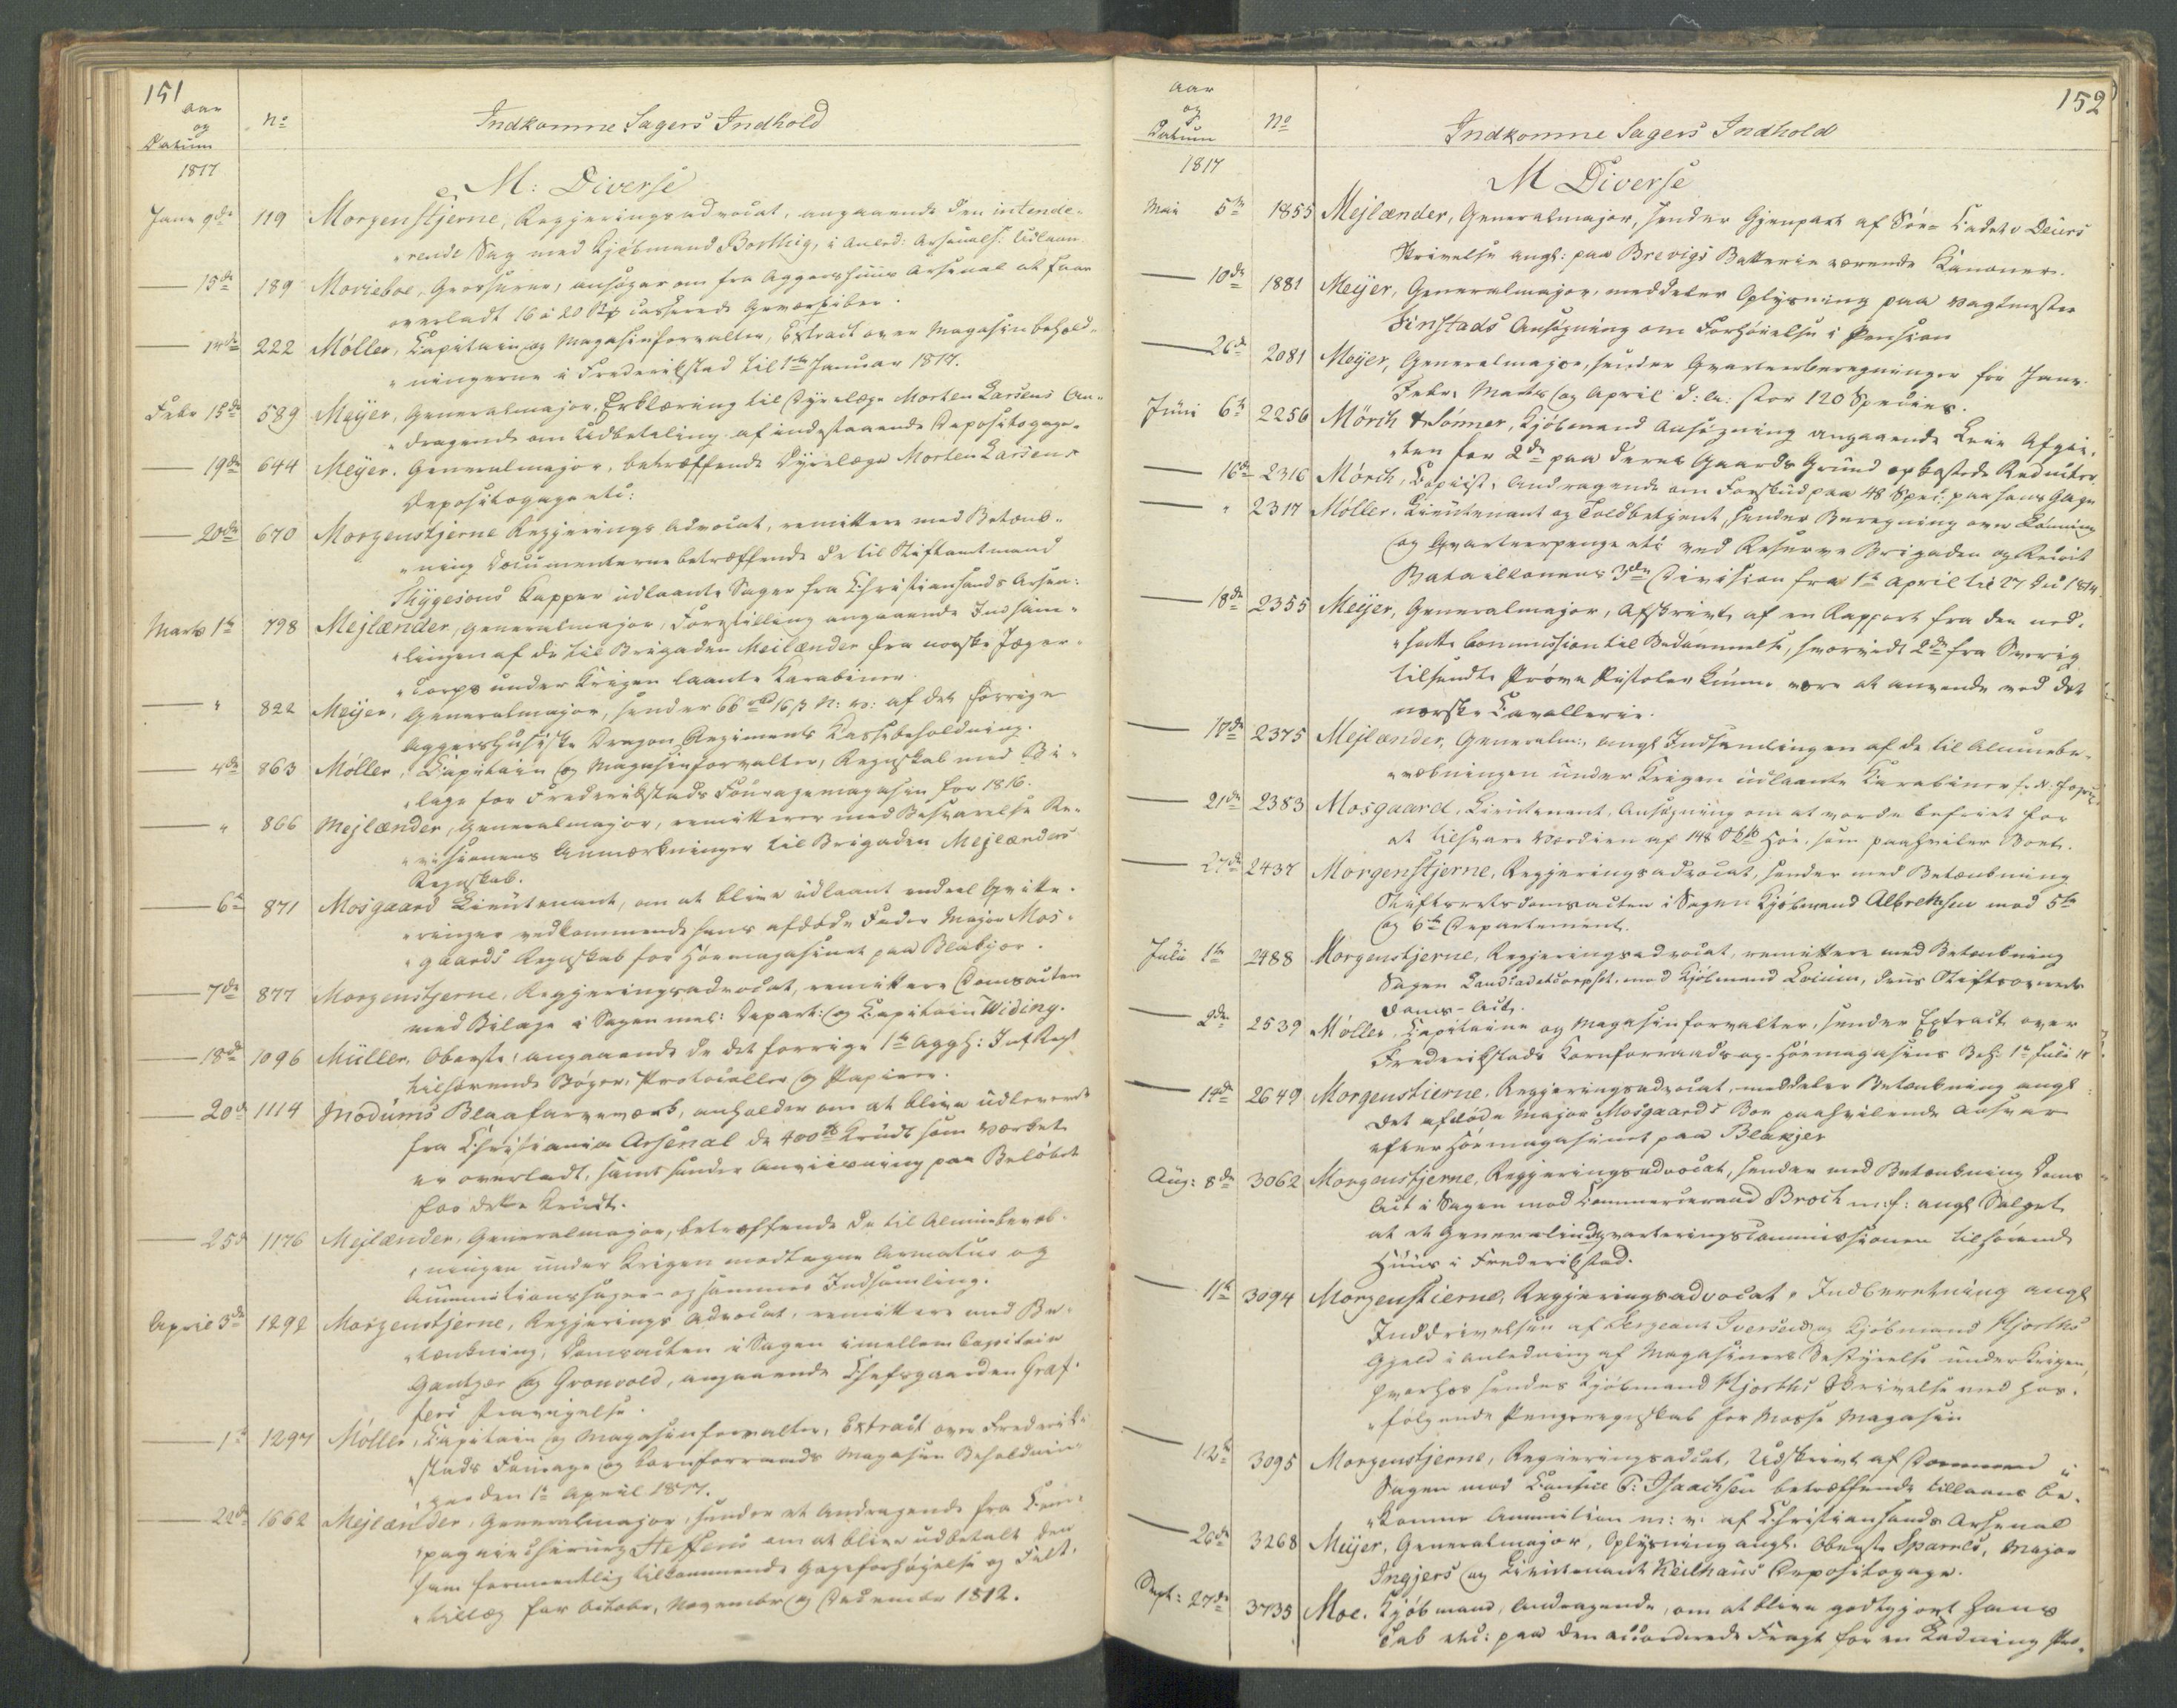 151
Aar
og
Datum
No
Indkomne Sagers Indhold
1817
M: Diverse
Janr 9de 119 Morgenstjerne, Regjeringsadvocat, angaaende den intende-
rende Sag med Kjøbmand Borthig, i Anled: Arsenals: Udlaan
— 13de 189 ansøger om fra Aggershuus Arsenal at faae
overladt 16 à 20 casserede Geværpiber.
— 222 Møller, Capitain og Magasinforvalter, Extract over Magasinbehold-
ningerne i Frederikstad til 1ste Januar 1817.
Febr 15de 589 Meyer, Generalmajor, Erklæring til Dyrelæge Morten Larsens An-
dragende om Udbetaling af indestaaende Depositogage.
— 19de 644 Meyer, Generalmajor, betræffende Dyrelæge Morten Larsens
Depositogage etc:
— 20de 670 Morgenstjerne Regjerings Advocat, remitterer med Betænk-
ning Documenterne betræffende de til Stiftamtmand
Thygesons Kapper udlaante Sager fra Christiansands Arsen:
Marts 1ste 798 Mejlænder, Generalmajor, Forestilling angaaende Indsam-
lingen af de til Brigaden Meilænder fra norske Jæger-
corps under Krigen laante Karabiner.
— " 822 Meyer, Generalmajor, sender 66 rd 16 ß N: v: af det forrige
Aggershusiske Dragon Regiments Kassebeholdning.
— 4de 863 Møller, Capitain og Magasinforvalter, Regnskab med Bi-
lage for Frederikstads Fouragemagasin for 1816.
— " 866 Mejlænder, Generalmajor, remitterer med Besvarelse Re-
visionens Anmærkninger til Brigaden Mejlænders
Regnskab.
— 6te 871 Mosgaard Lieutenant, om at blive udlaant endeel Qvitte-
ringer vedkommende hans afdøde Fader Major Mos-
gaards Regnskab for Høemagasinet paa Blakjer.
— 7de 877 Morgenstjerne, Regjeringsadvocat, remitterer Domsacten
med Bilage i Sagen mel: Depart: og Capitain Widing.
— 18de 1096 Müller, Oberste, angaaende de det forrige 1ste Aggh: Inf Regt
tilhørende Bøger, Protocoller og Papirer.
— 20de 1114 Modums Blaafarveværk, anholder om at blive udleveret
fra Christiania Arsenal de 400 tb Krudt som Værket
er overladt, samt sender Anviisning paa Beløbet
for dette Krudt.
— 25de 1176 Mejlænder, Generalmajor, betræffende de til Almuebevæb-
ningen under Krigen modtagne Armatur og
Ammunitionssager og sammes Indsamling.
April 3de 1292 Morgenstjerne, Regjerings Advocat, remitterer med Be-
tænkning, Domsacten i Sagen imellem Capitain
og Gronvold, angaaende Chefsgaarden Graf-
fers Fravigelse.
— 1ste 1297 Møller, Capitain og Magasinforvalter, Extract over Frederik-
stads Fourage og Kornforraads Magasin Beholdnin-
ger den 1ste April 1817.
— 22de 1662 Mejlænder, Generalmajor, sender et Andragende fra Com-
pagniechirurg Steffens om at blive udbetalt den
ham formeentlig tilkommende Gageforhøjelse og Felt-
tillæg for October, November og December 1812.
Aar
og
Datum
No
Indkomne Sagers Indhold
152
1817
M Diverse
Mai 5te 1855 Mejlænder, Generalmajor, sender Gjenpart af Søe-Cadet v Deurs
Skrivelse angl: paa Brevigs Batterie værende Kanoner.
— 10de 1881 Meijer, Generalmajor, meddeler Oplysning paa Vagtmester
Finstads Ansøgning om Forhøielse i Pension
— 26de 2081 Meyer, Generalmajor, sender Qvarteerberegninger for Janr
Febr, Marts og April d: A: stor 120 Species.
Juni 6te 2256 Mörch & Sønner, Kjøbmand Ansøgning angaaende Leie Afgif-
ten for 2de paa deres Gaards Grund opkastede Redouter.
— 16de 2316 Mörch, Copiist, Andragende om Forskud paa 48 Spec: paa hans Gage
— " 2317 Møller, Lieutenant og Toldbetjent, sender Beregning over Lønning
og Qvarteerpenge etc ved Reserve Brigaden og Recrut
Bataillonens 3die Division fra 1ste April til 27 1814.
— 18de 2355 Meyer, Generalmajor, Afskrivt af en Rapport fra den ned-
satte Commission til Bedømmelse, hvorvidt 2de fra Sverig
tilsendte Prøve Pistoler kunne være at anvende ved det
norske Cavallerie.
— 2375 Mejlænder, Generalm:, angl Indsamlingen af de til Almuebe-
væbningen under Krigen udlaante Karabiner
— 21de 2383 Mosgaard, Lieutenant, Ansøgning om at vorde befriet for
at tilsvare Værdien af 148 Høe, som paahviler Boet.
— 27de 2437 Morgenstjerne, Regjeringsadvocat, sender med Betænkning
Stiftsretsdomsacten i Sagen Kjøbmand Albrethsen mod 5te
og 6te Departement.
Juli 1ste 2488 Morgenstjerne, Regjeringsadvocat, remitterer med Betænkning
Sagen Landcadetcorpset mod Kjøbmand
Doms-Act.
— 2den 2539 Møller, Capitaine og Magasinforvalter, sender Extract over
Frederikstads Kornforraads og Høemagasins Beh: 1ste Juli
— 14de 2649 Morgenstierne, Regjeringsadvocat, meddeler Betænkning angl
det afdøde Major Mosgaards Boe paahvilende Ansvar
efter Høemagasinet paa Blakjer
Aug: 8de 3062 Morgenstjerne, Regjeringsadvocat, sender med Betænkning Doms
Act i Sagen mod Commerceraad Broch m: f: angl Salget
at et Generalindqvarteringscommissionen tilhørende
Huus i Frederikstad.
— 11te 3094 Morgenstierne, Regjeringsadvocat, Indberetning angl
Inddrivelsen af Sergeant Iversens og Kjøbmand Hjorths
Gjeld i Anledning af Magasiners Bestyrelse under Krigen,
hvorhos sendes Kjøbmand Hjorths Skrivelse med hos-
følgende Pengeregnskab for Mosse Magasin
— 12te 3095 Morgenstjerne, Regjeringsadvocat, Udskrivt af Dommen i
Sagen mod Consul Isaachsen betræffende tillaans be-
komne Ammunition m: v: af Christiansands Arsenal
— 26de 3268 Meijer, Generalmajor, Oplysning angl. Oberste Sparres, Major
Ingjers og Lieutenant Keilhaus Depositogage.
Sept: 27de 3735 Moe, Kjøbmand, Andragende, om at blive godtgjort hans
Tab etc: paa den accorderede Fragt for en Ladning